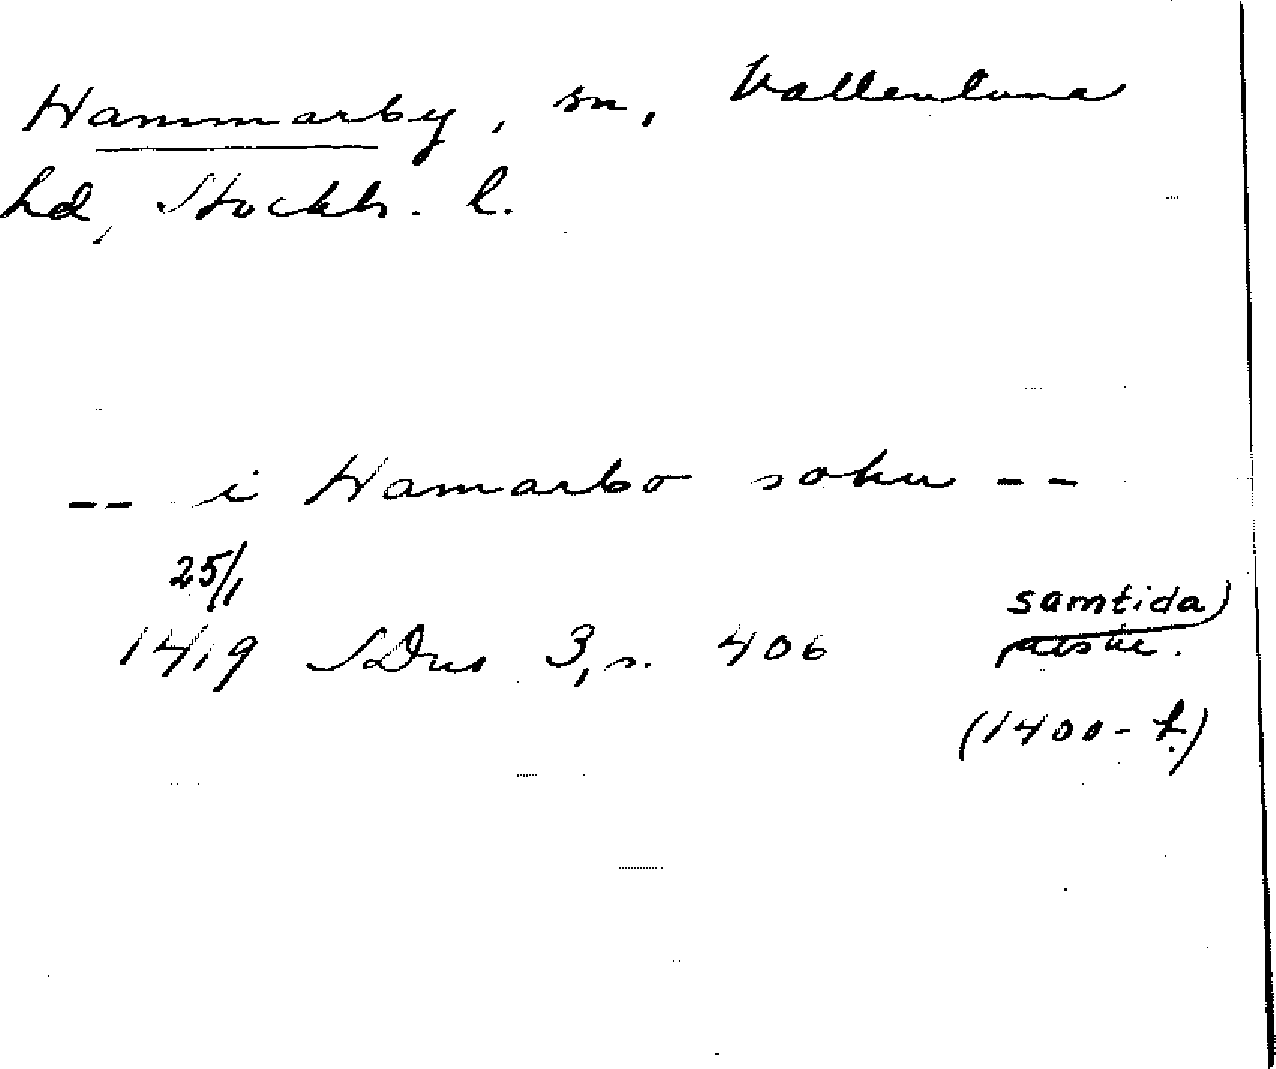 Hammarby, sn, Vallentuna
hd, Stockh. l.
-- i Hamarbo sokn --
25/1
1419 SDns 3, s. 406 samtida)
(1400-t.)